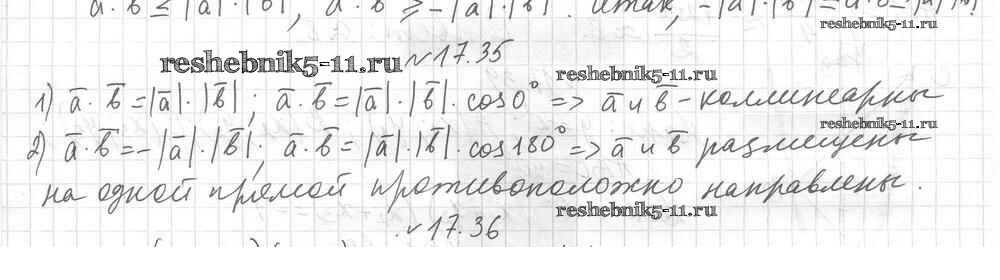 a · b ≤ |a| · |b|, a · b ≥ -|a| · |b|. Итак, -|a| · |b| ≤ a · b ≤ |a| · |b|
reshebnik5-11.ru
reshebnik5-11.ru №17.35
reshebnik5-11.ru
1) a̅ · b̅ = |a̅| · |b̅|; a̅ · b̅ = |a̅| · |b̅| · cos0° => a̅ и b̅ - коллинеарны
reshebnik5-11.ru
2) a̅ · b̅ = -|a̅| · |b̅|; a̅ · b̅ = |a̅| · |b̅| · cos180° => a̅ и b̅ размещены
на одной прямой противоположно направлены.
reshebnik5-11.ru
№17.36